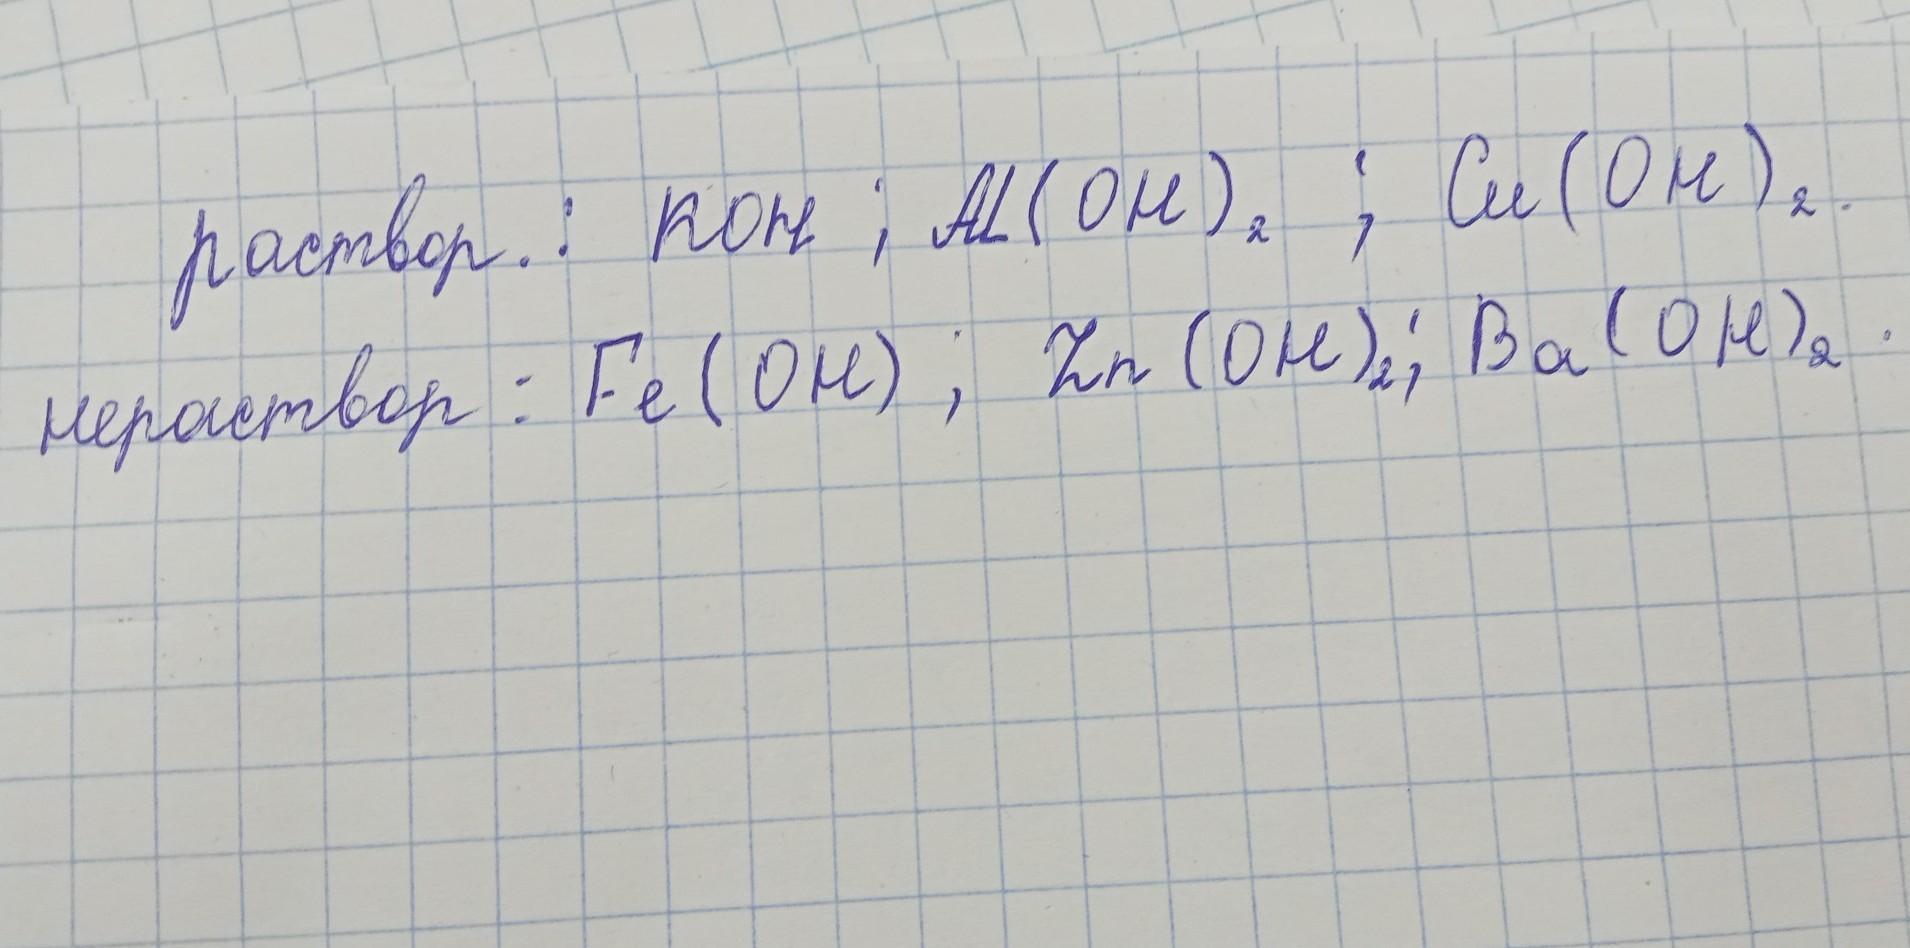 раствор.: KOH; Al(OH)₂; Cu(OH)₂.
нераствор: Fe(OH); Zn(OH)₂; Ba(OH)₂.